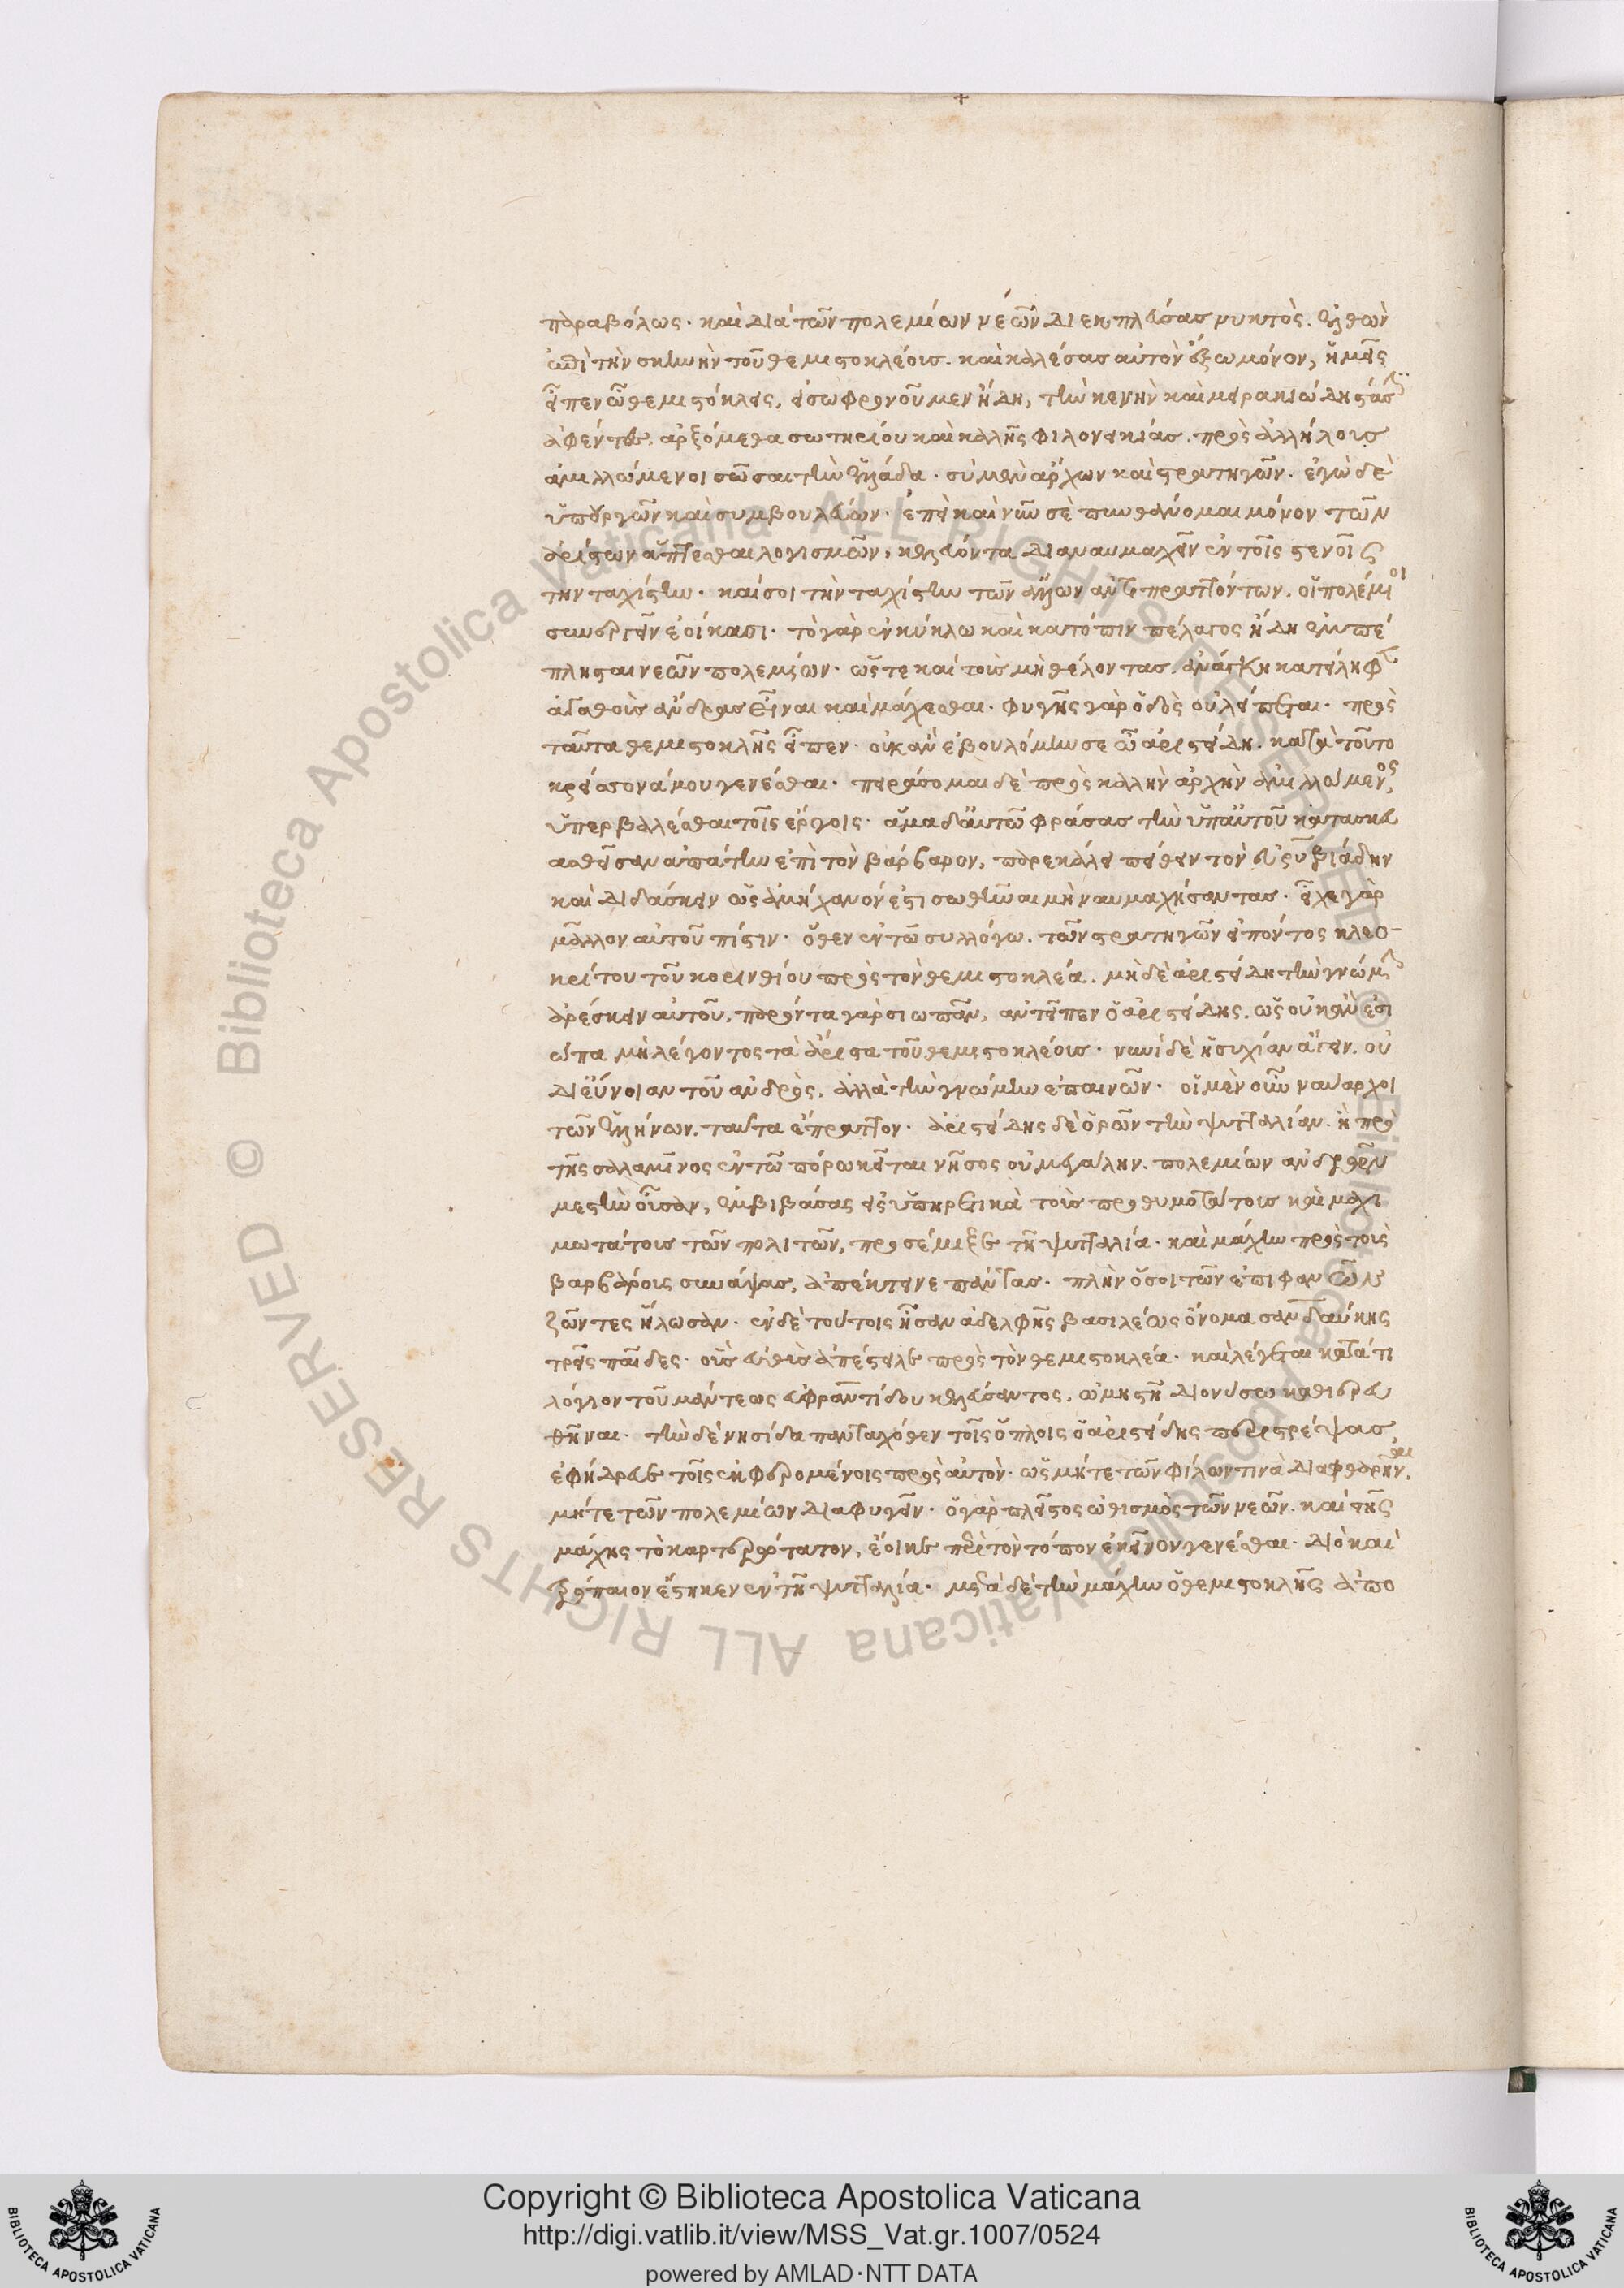 παραβόλως· καὶ διὰ τῶν πολεμίων νεῶν διεκπλεύσας νυκτὸς. ἐλθὼν
ἐπὶ τὴν σκηνὴν τοῦ θεμιστοκλέους. καὶ καλέσας αὐτὸν ἔξω μόνον, ἡμεῖς
εἶπεν ὦ θεμιστόκλεις, εἰ σωφρονοῦμεν ἤδη, τὴν κενὴν καὶ μειρακιώδη στάσιν
ἀφέντες. ἀρξόμεθα σωτηρίου καὶ καλῆς φιλονεικίας. πρὸς ἀλλήλους
ἁμιλλώμενοι σῶσαι τὴν ἑλλάδα. σὺ μὲν ἄρχων καὶ στρατηγῶν. ἐγὼ δὲ
ὑπουργῶν καὶ συμβουλεύων. ἐπεὶ καὶ νῦν σὲ πυνθάνομαι μόνον τῶν
ἀρίστων ἅπτεσθαι λογισμῶν, κελεύοντα διαναυμαχεῖν ἐν τοῖς στενοῖς
τὴν ταχίστην. καί σοι τὴν ταχίστην τῶν ἄλλων ἀντιπραττόντων. οἱ πολέμιοι
συνεργεῖν ἐοίκασι. τὸ γὰρ ἐν κύκλω καὶ κατόπιν πέλαγος ἤδη ἐμπέ
πλησται νεῶν πολεμίων. ὥστε καὶ τοὺς μὴ θέλοντας. ἀνάγκη κατείληφε
ἀγαθοὺς ἄνδρας εἶναι καὶ μάχεσθαι. φυγῆς γὰρ ὁδὸς οὐ λείπεται. πρὸς
ταῦτα θεμιστοκλῆς εἶπεν. οὐκ ἂν ἐβουλόμην σε ὦ ἀριστείδη. κατὰ τοῦτο
κρείσσονά μου γενέσθαι. πειράσομαι δὲ πρὸς καλὴν ἀρχὴν ἁμιλλώμενος,
ὑπερβαλέσθαι τοῖς ἔργοις. ἅμα δ' αὐτῶ φράσας τὴν ὑπ' αὐτοῦ κατασκευ
ασθεῖσαν ἀπάτην ἐπὶ τὸν βάρβαρον, παρεκάλει πείθειν τὸν εὐρυβιάδην
καὶ διδάσκειν ὡς ἀμήχανόν ἐστι σωθῆναι μὴ ναυμαχήσαντας. εἶχε γὰρ
μᾶλλον αὐτοῦ πίστιν. ὅθεν ἐν τῶ συλλόγω. τῶν στρατηγῶν εἰπόντος κλεο-
κρίτου τοῦ κορινθίου πρὸς τὸν θεμιστοκλέα. μὴ δὲ ἀριστείδη τὴν γνώμην
ἀρέσκειν αὐτοῦ, παρόντα γὰρ σιωπᾶν, ἀντεῖπεν ὁ ἀριστείδης. ὡς οὐκ ἂν ἐσι
ώπα μὴ λέγοντος τὰ ἄριστα τοῦ θεμιστοκλέους. νυνὶ δὲ ἡσυχίαν ἄγειν. οὐ
δι' εὔνοιαν τοῦ ἀνδρὸς, ἀλλὰ τὴν γνώμην ἐπαινῶν. οἱ μὲν οὖν ναύαρχοι
τῶν ἑλλήνων. ταῦτα ἔπραττον. ἀριστείδης δὲ ὁρῶν τὴν ψυττάλιαν. ἣ πρὸ
τῆς σαλαμῖνος ἐν τῶ πόρω κεῖται νῆσος οὐ μεγάλην. πολεμίων ἀνδρῶν
μεστὴν οὖσαν, ἐμβιβάσας εἰς ὑπηρετικὰ τοὺς προθυμοτάτους καὶ μαχι
μωτάτους τῶν πολιτῶν, προσέμιξε τῆ ψυτταλία. καὶ μάχην πρὸς τοὺς
βαρβάρους συνάψας, ἀπέκτεινε πάντας. πλὴν ὅσοι τῶν ἐπιφανῶν
ζῶντες ἥλωσαν. ἐν δὲ τούτοις ἦσαν ἀδελφῆς βασιλέως ὄνομα σανδαύκης
τρεῖς παῖδες. οὓς εὐθὺς ἀπέστειλε πρὸς τὸν θεμιστοκλέα. καὶ λέγεται κατά τι
λόγιον τοῦ μάντεως εὐφραντίδου κελεύσαντος, ὠμηστῆ διονύσω καθιερευ
θῆναι. τὴν δὲ νησίδα πανταχόθεν τοῖς ὅπλοις ὁ ἀριστείδης περιστρέψας,
ἐφήδρευε τοῖς ἐκφερομένοις πρὸς αὐτὸν. ὡς μήτε τῶν φίλων τινὰ διαφθαρῆναι,
μήτε τῶν πολεμίων διαφυγεῖν. ὁ γὰρ πλεῖστος ὠθισμὸς τῶν νεῶν. καὶ τῆς
μάχης τὸ καρτερώτατον, ἔοικε περὶ τὸν τόπον ἐκεῖνον γενέσθαι. διὸ καὶ
τρόπαιον ἕστηκεν ἐν τῆ ψυτταλία. μετὰ δὲ τὴν μάχην ὁ θεμιστοκλῆς ἀπο
© Biblioteca Apostolica Vaticana ALL RIGHTS RESERVED
© Biblioteca Apostolica Vaticana ALL RIGHTS RESERVED
Copyright © Biblioteca Apostolica Vaticana
http://digi.vatlib.it/view/MSS_Vat.gr.1007/0524
powered by AMLAD·NTT DATA
BIBLIOTECA APOSTOLICA VATICANA
BIBLIOTECA APOSTOLICA VATICANA